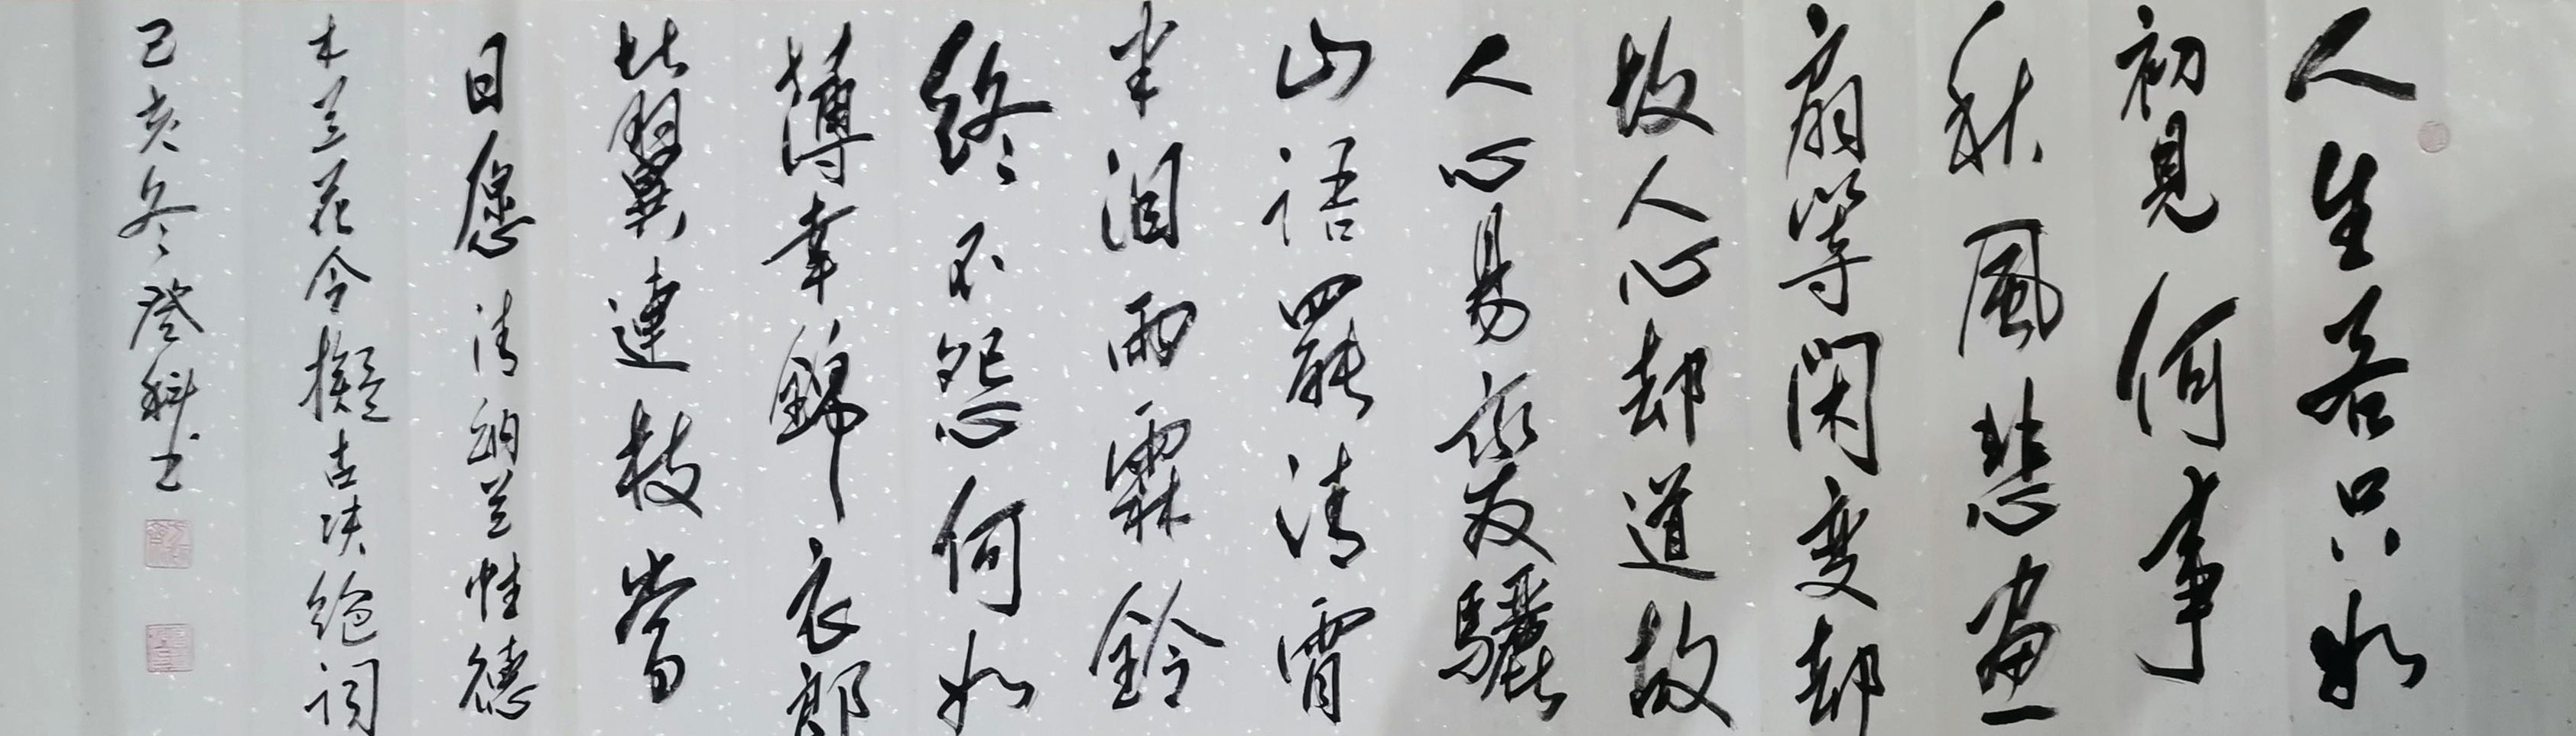 人生若只如
初見何事
秋風悲畫
扇等閑变却
故人心却道故
人心易變驪
山語罷清宵
半泪雨霖鈴
終不怨何如
薄幸錦衣郎
比翼連枝當
日愿 清納兰性德
木兰花令擬古决絶詞
己亥冬登科书